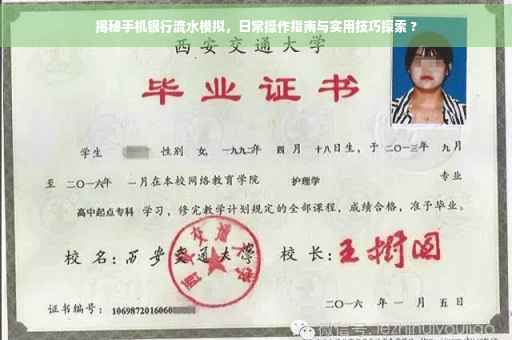 揭秘手机银行流水模拟，日常操作指南与实用技巧探索？
西安交通大学
毕业证书
学生 性别 女，一九九二年 四月 十八日生，于二〇一三年 九月
至 二〇一六年 一月在本校网络教育学院 护理学 专业
高中起点专科 学习，修完教学计划规定的全部课程，成绩合格，准予毕业。
校名：西安交通大学 校长：王树国
西安交通大学
证书编号：1069872016060
二〇一六年一月五日
微信号：jezhihuiyoujiao